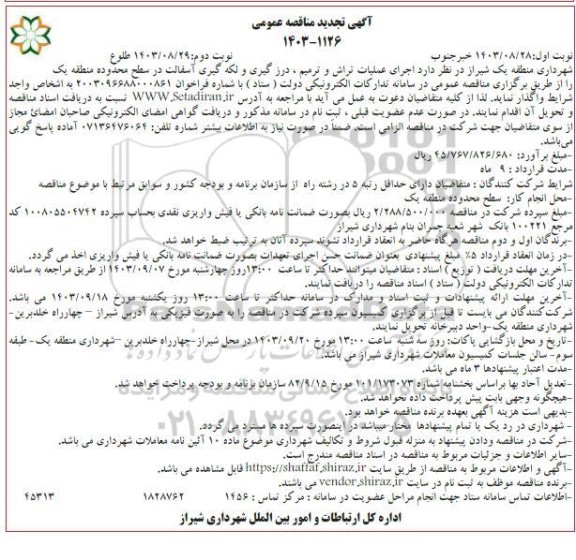 آگهی تجدید مناقصه عمومی
۱۴۰۳-۱۱۲۶
نوبت اول:۱۴۰۳/۰۸/۲۸ خبرجنوب نوبت دوم:۱۴۰۳/۰۸/۲۹ طلوع
شهرداری منطقه یک شیراز در نظر دارد اجرای عملیات تراش و ترمیم ، درز گیری و لکه گیری آسفالت در سطح محدوده منطقه یک
را از طریق برگزاری مناقصه عمومی در سامانه تدارکات الکترونیکی دولت ( ستاد ) با شماره فراخوان ۲۰۰۳۰۹۶۶۸۸۰۰۰۸۶۱ به اشخاص واجد
شرایط واگذار نماید. لذا از کلیه متقاضیان دعوت به عمل می آید با مراجعه به آدرس WWW.Setadiran.ir نسبت به دریافت اسناد مناقصه
و تحویل آن اقدام نمایند. در صورت عدم عضویت قبلی ، ثبت نام در سامانه مذکور و دریافت گواهی امضای الکترونیکی صاحبان امضائ مجاز
از سوی متقاضیان جهت شرکت در مناقصه الزامی است. ضمناً در صورت نیاز به اطلاعات بیشتر شماره تلفن: ۰۷۱۳۶۴۷۶۰۶۴ آماده پاسخ گویی
می باشد.
-مبلغ برآورد: ۴۵/۷۶۷/۸۲۶/۶۸۰ ریال
-مدت قرارداد : ۹ ماه
شرایط شرکت کنندگان : متقاضیان دارای حداقل رتبه ۵ در رشته راه از سازمان برنامه و بودجه کشور و سوابق مرتبط با موضوع مناقصه
-محل انجام کار: سطح محدوده منطقه یک
-مبلغ سپرده شرکت در مناقصه ۲/۲۸۸/۵۰۰/۰۰۰ ریال بصورت ضمانت نامه بانکی یا فیش واریزی نقدی بحساب سپرده ۱۰۰۸۰۵۵۰۴۷۴۲ کد
مرجع ۱۰۰۲۲۱ بانک شهر شعبه چمران بنام شهرداری شیراز
-برندگان اول و دوم مناقصه هرگاه حاضر به انعقاد قرارداد نشوند سپرده آنان به ترتیب ضبط خواهد شد.
-در زمان انعقاد قرارداد ۵٪ مبلغ پیشنهادی بعنوان ضمانت حسن اجرای تعهدات بصورت ضمانت نامه بانکی یا فیش واریزی اخذ می گردد.
-آخرین مهلت دریافت ( توزیع ) اسناد : متقاضیان میتوانند حداکثر تا ساعت ۱۳:۰۰روز چهارشنبه مورخ ۱۴۰۳/۰۹/۰۷ از طریق مراجعه به سامانه
تدارکات الکترونیکی دولت ( ستاد ) اسناد مناقصه را دریافت نمایند.
-آخرین مهلت ارائه پیشنهادات و ثبت اسناد و مدارک در سامانه حداکثر تا ساعت ۱۳:۰۰ روز یکشنبه مورخ ۱۴۰۳/۰۹/۱۸ می باشد.
شرکت‌کنندگان می بایست تا قبل از برگزاری کمیسیون سپرده شرکت در مناقصه را به صورت فیزیکی به آدرس شیراز – چهارراه خلدبرین-
شهرداری منطقه یک-واحد دبیرخانه تحویل نمایند.
-تاریخ و محل بازگشایی پاکات: روز سه شنبه ساعت ۱۳:۰۰ مورخ ۱۴۰۳/۰۹/۲۰ در محل شیراز-چهارراه خلدبرین –شهرداری منطقه یک- طبقه
سوم- سالن جلسات کمیسیون معاملات شهرداری شیراز می باشد.
-مدت اعتبار پیشنهادها ۳ ماه می باشد.
-تعدیل آحاد بها براساس بخشنامه شماره ۱۰۱/۱۷۳۰۷۳ مورخ ۸۲/۹/۱۵ سازمان برنامه و بودجه پرداخت خواهد شد.
-هیچگونه وجهی بابت پیش پرداخت داده نخواهد شد.
-بدیهی است هزینه آگهی بعهده برنده مناقصه خواهد بود.
- شهرداری در رد یک یا تمام پیشنهادها مختار میباشد در اینصورت سپرده ها مسترد می گردد.
-شرکت در مناقصه ودادن پیشنهاد به منزله قبول شروط و تکالیف شهرداری موضوع ماده ۱۰ آئین نامه معاملات شهرداری می باشد.
-سایر اطلاعات و جزئیات مربوط به مناقصه در اسناد مناقصه مندرج است.
-آگهی و اطلاعات مربوط به مناقصه از طریق سایت https://shaffaf.shiraz.ir قابل مشاهده می باشد.
-برنده مناقصه موظف به ثبت نام در سایت vendor.shiraz.ir می باشند.
-اطلاعات تماس سامانه ستاد جهت انجام مراحل عضویت در سامانه : مرکز تماس : ۱۴۵۶ ۱۸۲۸۷۶۲ ۴۵۳۱۳
اداره کل ارتباطات و امور بین الملل شهرداری شیراز
۰۲۱-۸۸۳۴۹۶۷۰-۵